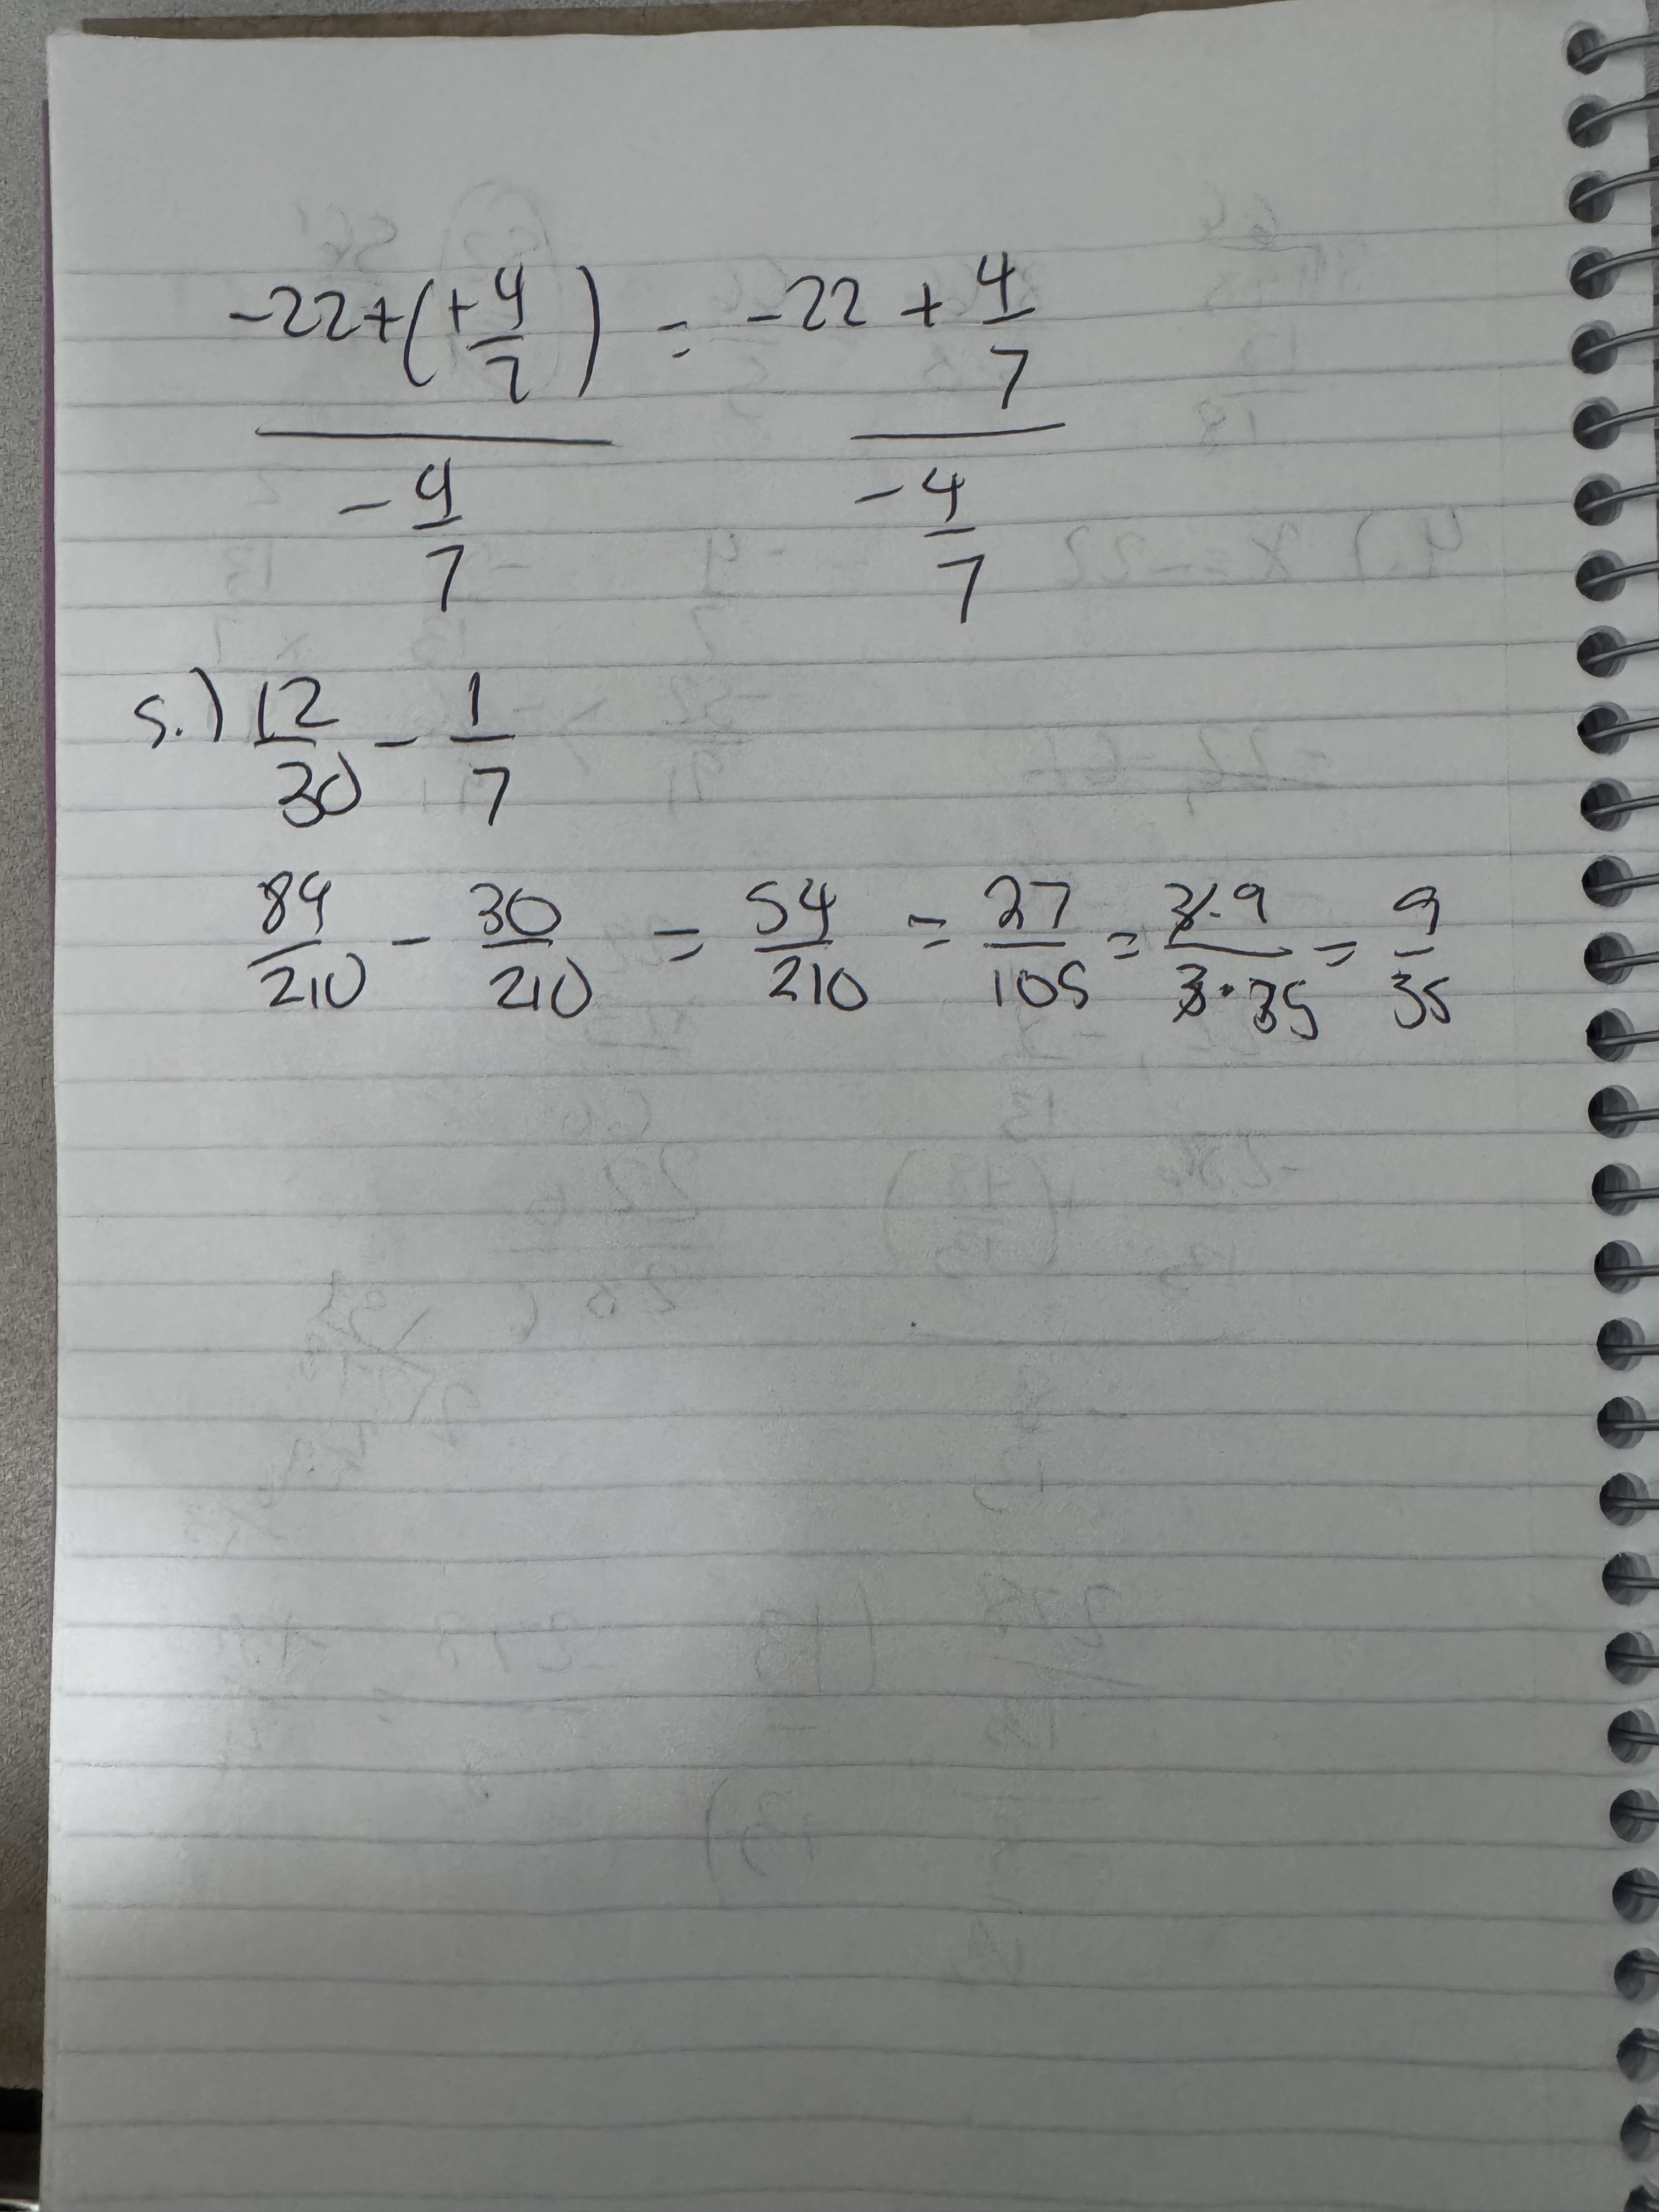 -22+(+4/7) = -22 + 4/7
-4/7 -4/7
5.) 12/30 - 1/7
84/210 - 30/210 = 54/210 = 27/105 = 3·9/3·35 = 9/35